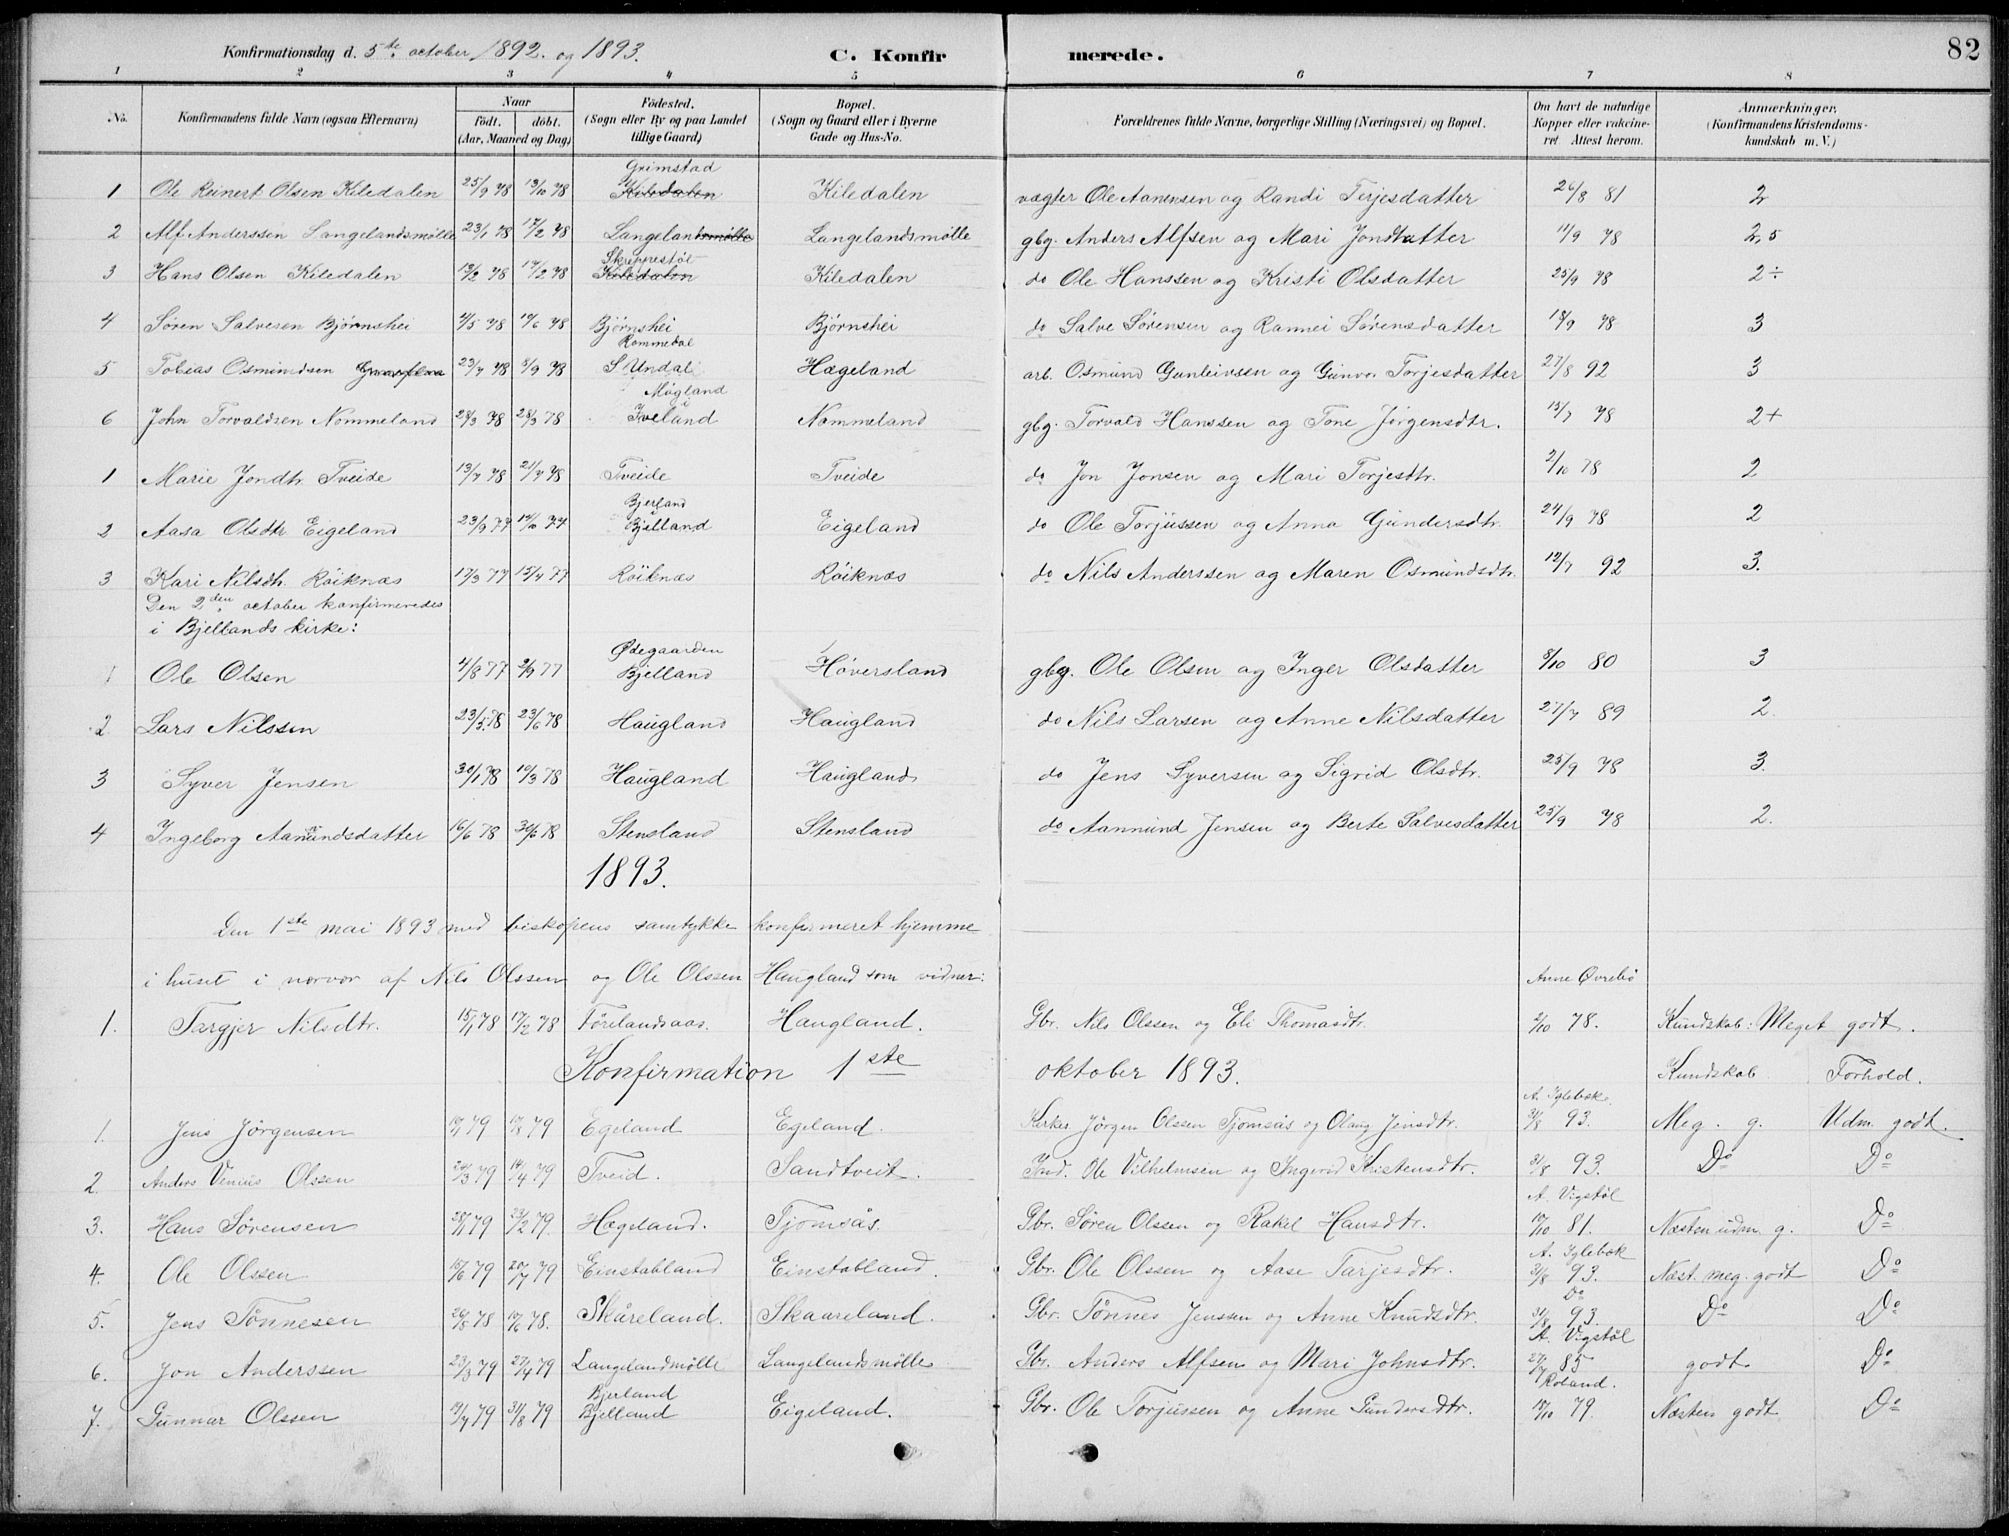 Konfirmationsdag d. 5te october 1892. og 1893. C. Konfir merede. 82
1 2 3 4 5 6 7 8
No. Konfirmandens fulde Navn (ogsaa Efternavn) Naar født. døbt. (Aar, Maaned og Dag) Fødested. (Sogn eller By og paa Landet tillige Gaard) Bopæl. (Sogn og Gaard eller i Byerne Gade og Hus-No. Forældrenes fulde Navne, borgerlige Stilling (Næringsvei) og Bopæl. Om havt de naturlige Kopper eller vakcineret Attest herom. Anmærkninger. (Konfirmandens Kristendomskundskab m. V.)
Grimstad
1 Ole Reinert Olsen Kiledalen 25/9 78 13/10 78 Kiledalen Kiledalen vægter Ole Aanensen og Randi Terjesdatter 26/8 81 2
2 Alf Anderssen Langelandsmølle 23/1 78 17/2 78 Langelandsmølle Langelandsmølle gbg. Anders Alfsen og Mari Jondtatter 11/9 78 2,5
Skreppestøl
3 Hans Olsen Kiledalen 12/2 78 17/2 78 Kiledalen Kiledalen do Ole Hanssen og Kristi Olsdatter 25/9 78 2÷
4 Søren Salvesen Bjørnshei 4/5 78 19/6 78 Bjørnshei Bjørnshei do Salve Sørensen og Rannei Sørensdatter 18/9 78 3
Rommedal
5 Tobias Osmundsen 23/7 78 8/9 78 S Undal Hægeland arb. Osmund Gunleivsen og Gunvor Torjesdatter 27/8 92 3
Møgland i
6 John Torvaldsen Nommeland 28/3 78 28/3 78 Iveland Nommeland gbg. Torvald Hanssen og Tone Jørgensdtr. 15/7 78 2+
1 Marie Jondtr Tveide 13/7 78 21/7 78 Tveide Tveide do Jon Jonsen og Mari Torjesdtr. 2/10 78 2
Bjerland
2 Aasa Olsdtr Eigeland 23/9 77 14/10 77 Bjelland Eigeland do Ole Torjussen og Anna Gundersdtr. 24/9 78 2
3 Kari Nilsdtr. Røiknæs 17/3 77 15/4 77 Røiknæs Røiknæs do Nils Anderssen og Maren Osmundsdtr. 12/7 92 3.
Den 2den october konfirmeredes
i Bjellands kirke:
Ødegaarden
1 Ole Olsen 4/8 77 2/9 77 Bjelland Høversland gbg. Ole Olsen og Inger Olsdatter 8/10 80 3
2 Lars Nilssen 23/5 78 23/6 78 Haugland Haugland do Nils Larsen og Anne Nilsdatter 27/7 89 2.
3 Syver Jensen 30/1 78 10/3 78 Haugland Haugland do Jens Syversen og Sigrid Olsdtr. 25/9 78 3.
4 Ingeborg Aanundsdatter 16/6 78 30/6 78 Stensland Stensland do Aanund Jensen og Berte Salvesdatter 25/9 78 2.
1893.
Den 1ste mai 1893 med biskopens samtykke konfirmeret hjemme
i huset i nærvær af Nils Olssen og Ole Olssen Haugland som vidner: Anne Øvrebø
1. Targjer Nilsdtr. 15/1 78 17/2 78 Førelandsaas. Haugland. Gbr. Nils Olssen og Eli Thomasdtr. 2/10 78. Kundskab: Meget godt.
Konfirmation 1ste oktober 1893. Kundskab Forhold.
A. Iglebæk
1. Jens Jørgensen 79 79 Egeland Egeland. Kirkes. Jørgen Olssen Tjomsås og Olaug Jensdtr. 31/8 93. Meg. g. Udm. godt.
2. Anders Venius Olssen 24/3 79 14/4 79 Tveid. Sandtveit. Ind. Ole Vilhelmsen og Ingerid Kristensdtr. 31/8 93. Do Do
A. Vigstøl
3. Hans Sørensen 28/1 79 23/2 79. Hægeland. Tjomsås. Gbr. Søren Olssen og Rakel Hansdtr. 10/10 81. Næsten udm. g. Do
A. Iglebæk
4. Ole Olssen 15/6 79 20/7 79 Einstabland Einstabland. Gbr. Ole Olssen og Aase Tarjesdtr. 31/8 93. Næst. meg. godt Do
Do
5. Jens Tønnesen 26/8 78 78. Skåreland. Skaareland. Gbr. Tønnes Jenssen og Anne Knudsdtr. 31/8 93. Do Do
A. Vigstøl
6. Jon Anderssen 23/3 79 27/4 79 Langelandmølle Langelandsmølle Gbr. Anders Alfsen og Mari Johnsdtr. 27/7 85 godt Do
Bjerland Roland.
7. Gunnar Olssen 19/7 79 31/8 79 Bjelland Eigeland. Gbr. Ole Torjussen og Anne Gundersdtr. 18/10 79. Næsten godt Do